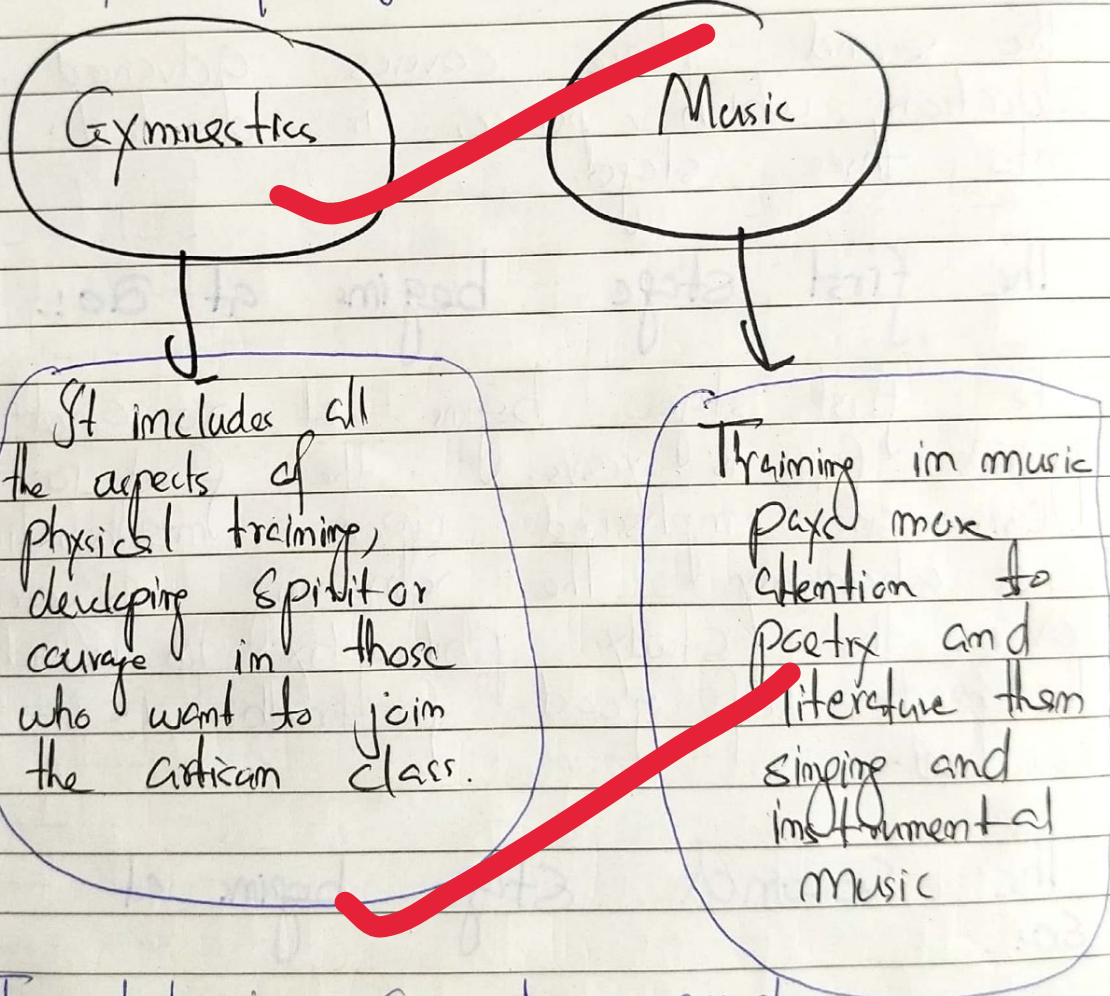 Gymnestics
Music
It includes all
the aspects of
physical training,
developing spirit or
courage in those
who want to join
the artisan class.
Training in music
pays more
attention to
poetry and
literature then
singing and
instrumental
music